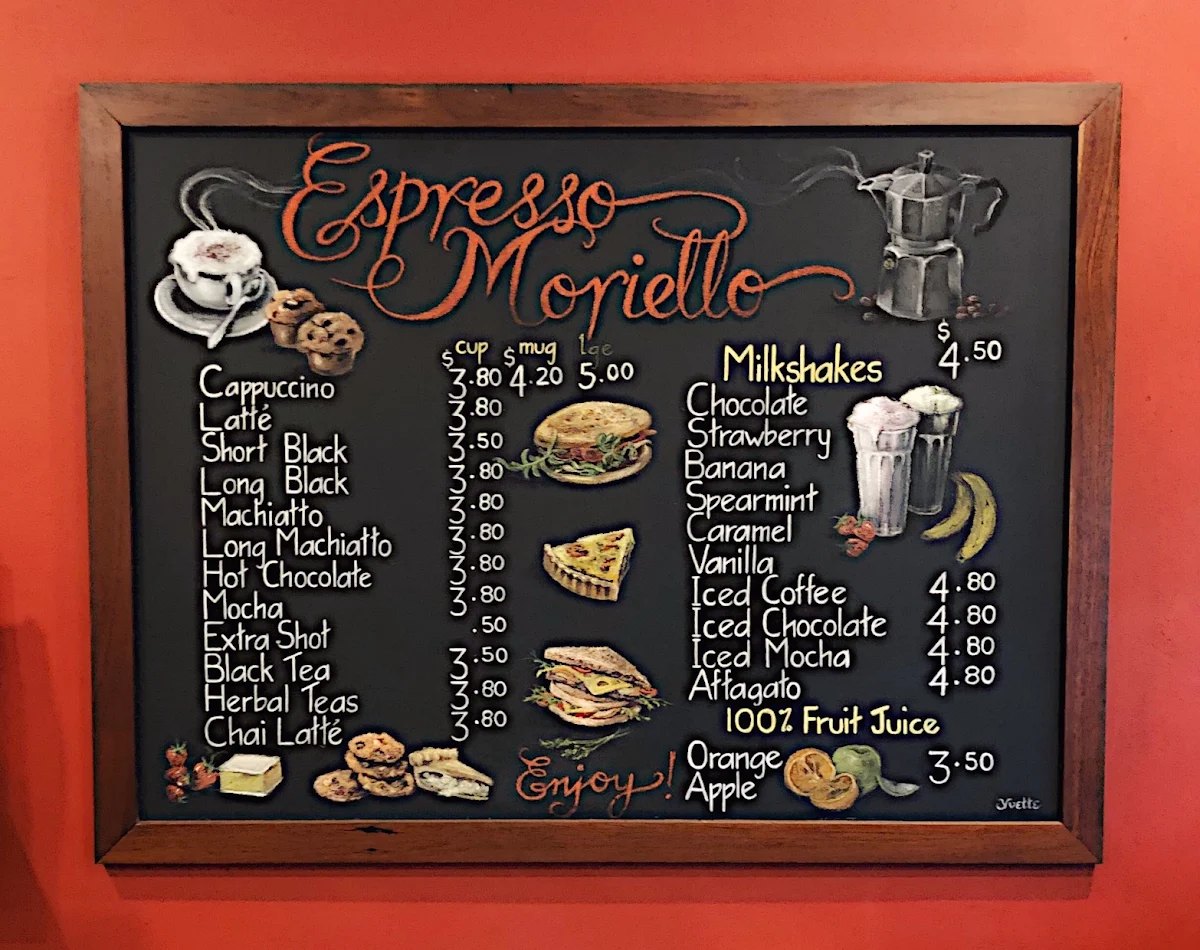 Espresso
Moriello
$ cup $ mug lge
Cappuccino 3.80 4.20 5.00
Latté 3.80
Short Black 3.50
Long Black 3.80
Machiatto 3.80
Long Machiatto 3.80
Hot Chocolate 3.80
Mocha 3.80
Extra Shot .50
Black Tea 3.50
Herbal Teas 3.80
Chai Latté 3.80
Enjoy!
Milkshakes $ 4.50
Chocolate
Strawberry
Banana
Spearmint
Caramel
Vanilla
Iced Coffee 4.80
Iced Chocolate 4.80
Iced Mocha 4.80
Affagato 4.80
100% Fruit Juice
Orange 3.50
Apple
Yvette